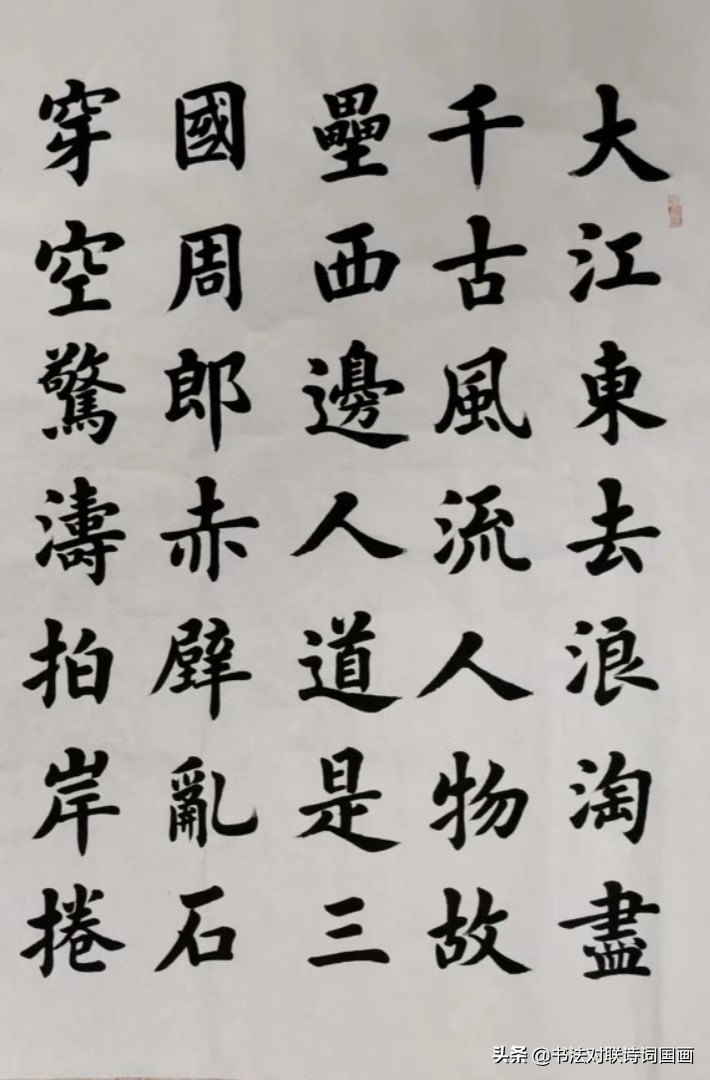 大江東去浪淘盡
千古風流人物故
壘西邊人道是三
國周郎赤壁亂石
穿空驚濤拍岸捲
头条 @书法对联诗词国画